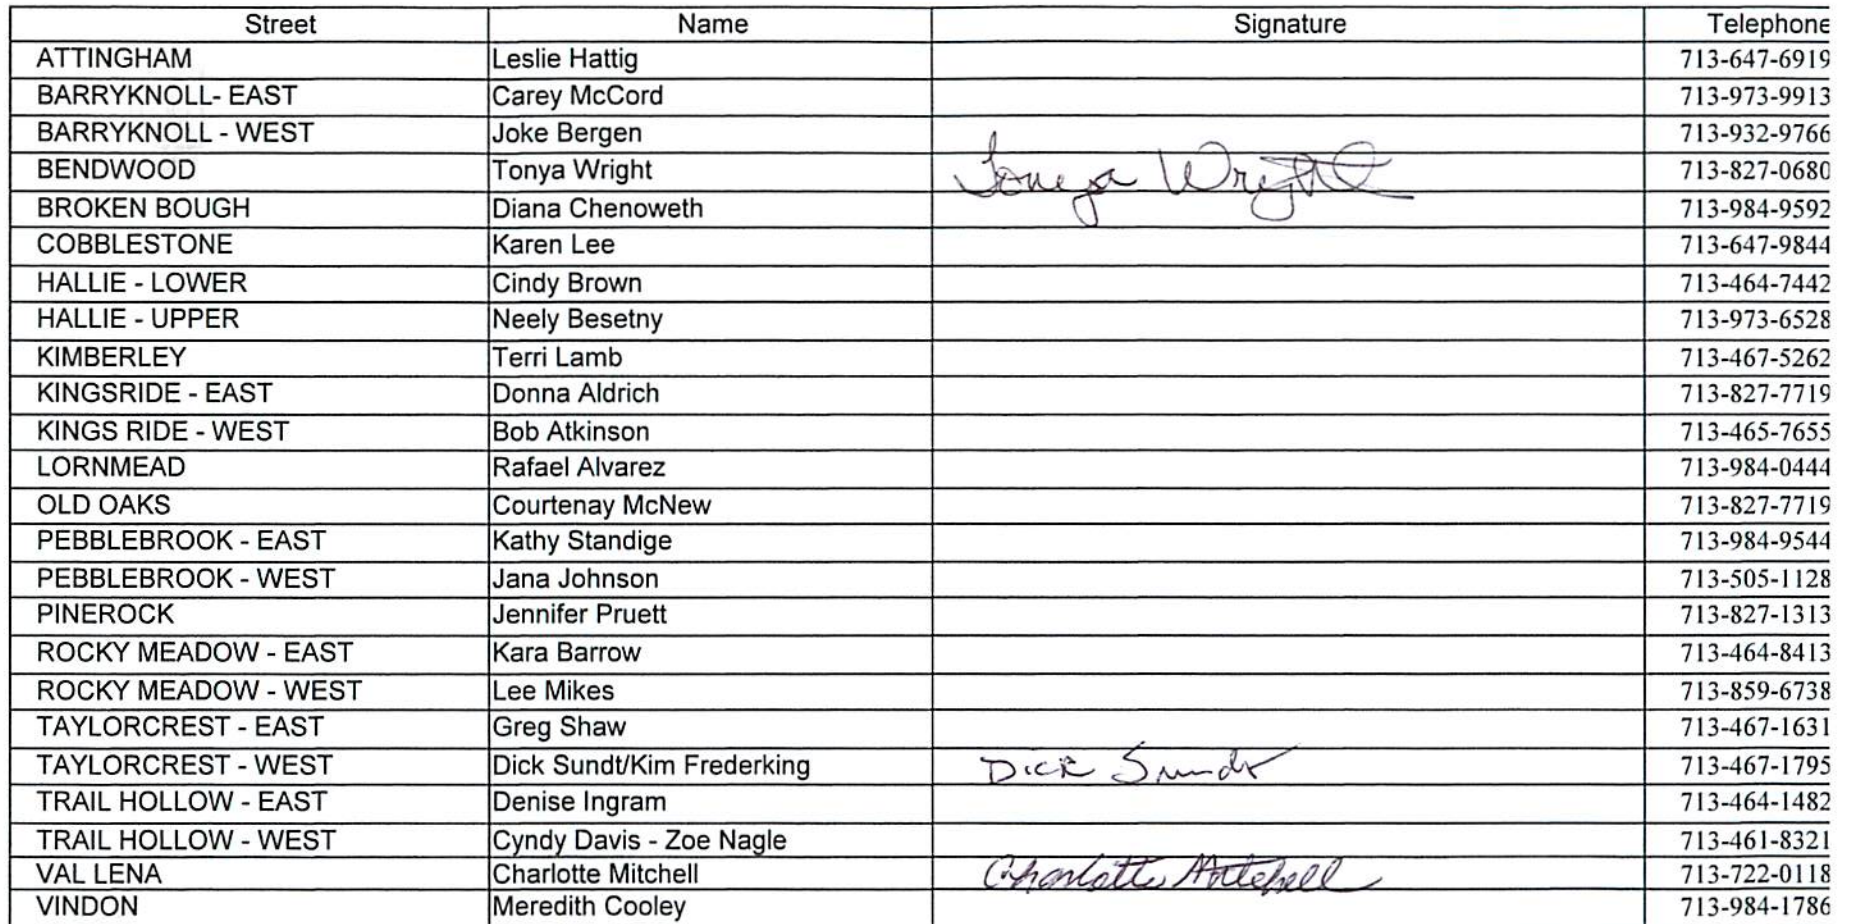 Street Name Signature Telephone
ATTINGHAM Leslie Hattig 713-647-6919
BARRYKNOLL- EAST Carey McCord 713-973-9913
BARRYKNOLL - WEST Joke Bergen 713-932-9766
BENDWOOD Tonya Wright Tonya Wright 713-827-0680
BROKEN BOUGH Diana Chenoweth 713-984-9592
COBBLESTONE Karen Lee 713-647-9844
HALLIE - LOWER Cindy Brown 713-464-7442
HALLIE - UPPER Neely Besetny 713-973-6528
KIMBERLEY Terri Lamb 713-467-5262
KINGSRIDE - EAST Donna Aldrich 713-827-7719
KINGS RIDE - WEST Bob Atkinson 713-465-7655
LORNMEAD Rafael Alvarez 713-984-0444
OLD OAKS Courtenay McNew 713-827-7719
PEBBLEBROOK - EAST Kathy Standige 713-984-9544
PEBBLEBROOK - WEST Jana Johnson 713-505-1128
PINEROCK Jennifer Pruett 713-827-1313
ROCKY MEADOW - EAST Kara Barrow 713-464-8413
ROCKY MEADOW - WEST Lee Mikes 713-859-6738
TAYLORCREST - EAST Greg Shaw 713-467-1631
TAYLORCREST - WEST Dick Sundt/Kim Frederking Dick Sundt 713-467-1795
TRAIL HOLLOW - EAST Denise Ingram 713-464-1482
TRAIL HOLLOW - WEST Cyndy Davis - Zoe Nagle 713-461-8321
VAL LENA Charlotte Mitchell Charlotte Mitchell 713-722-0118
VINDON Meredith Cooley 713-984-1786